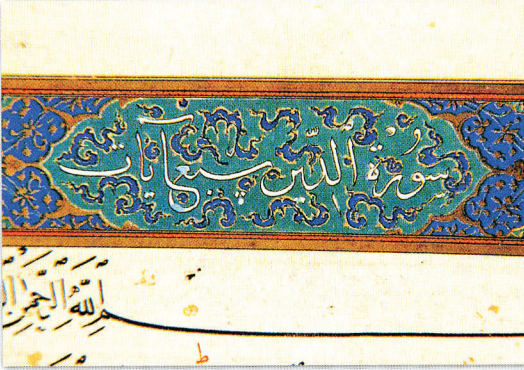 سُورَةُ الدِّينِ سَبْعُ آيَات
مِ اللَّهِ الرَّحْمٰنِ
ط